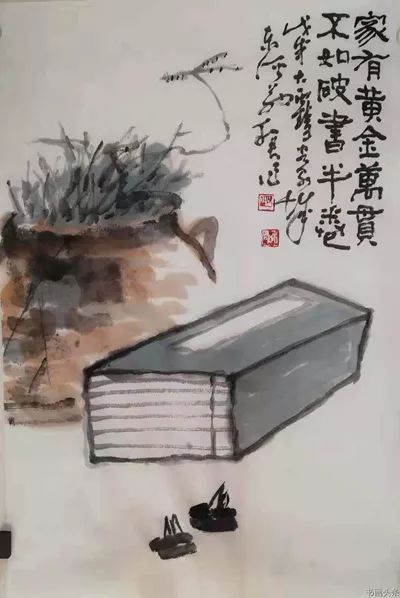 家有黄金萬貫
不如破書半卷
戊戌大雪
书画头条